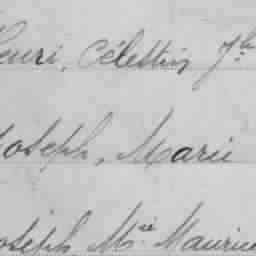 Henri, Célestin
Joseph, Marie
Joseph, M.ie Maurice